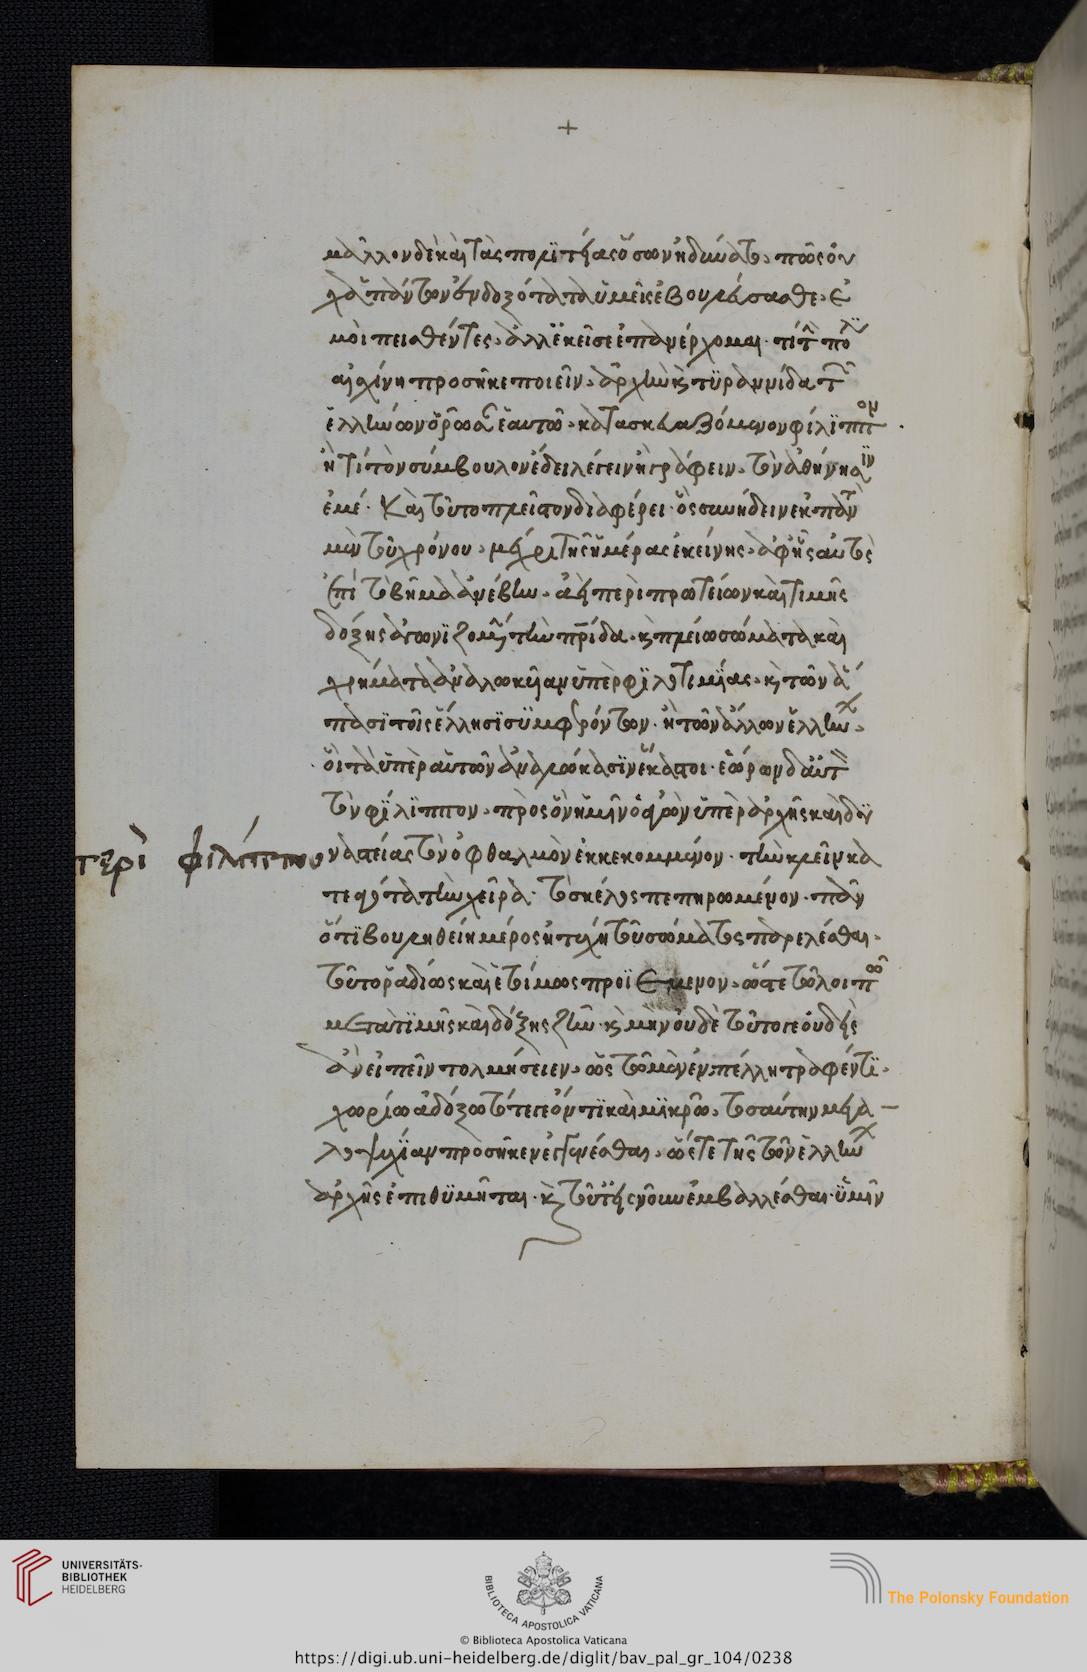 +
μᾶλλον δὲ καὶ τὰς πολιτείας ὅσων ἠδύνατο. πῶς οὐ
χ ἁπάντων ἐνδοξότατα ὑμεῖς ἐβουλεύσασθε. ἐ
μοὶ πεισθέντες. ἀλλ' ἐκεῖσε ἐπανέρχομαι. τί τ πόλιν
αἰσχίνη προσῆκε ποιεῖν. ἀρχὴν κ τυραννίδα τ
ἑλλήνων ὁρῶσαν ἑαυτῶ. κατασκευαζόμενον φίλιππον.
ἢ τί τὸν σύμβουλον ἔδει λέγειν ἢ γράφειν. τὸν ἀθήνησιν
ἐμέ. καὶ τοῦτο πλεῖστον διαφέρει. ὃς συνήδειν ἐκ παντ
μὲν τοῦ χρόνου. μέχρι τῆς ἡμέρας ἐκείνης. ἀφ' ἧς αὐτὸς
ἐπὶ τὸ βῆμα ἀνέβην. ἀεὶ περὶ πρωτείων καὶ τιμῆς
δόξης ἀγωνιζομένην τὴν πρίδα. κ πλείω σώματα καὶ
χρήματα ἀναλωκυῖαν ὑπὲρ φιλοτιμίας. κ τῶν ἅ
πασι τοῖς ἕλλησι συμφερόντων. ἢ τῶν ἄλλων ἑλλήνων.
οἱ τὰ ὑπὲρ αὑτῶν ἀναλώκασιν ἕκαστοι. ἑώρων δ' αὐτ
τὸν φίλιππον. πρὸς ὃν ἡμῖν ὁ ἀγὼν ὑπὲρ ἀρχῆς καὶ δυ
περὶ φιλίππου
ναστείας τὸν ὀφθαλμὸν ἐκκεκομμένον. τὴν κλεῖν κα
τεαγότα τὴν χεῖρα. τὸ σκέλος πεπηρωμένον. πᾶν
ὅτι βουληθείη μέρος ἡ τύχη τοῦ σώματος παρελέσθαι.
τοῦτο ῥαδίως καὶ ἑτοίμως προϊέμενον. ὥστε τῶ λοιπῶ
μετὰ τιμῆς καὶ δόξης ζῆν. κ μὴν οὐδὲ τοῦτό γε οὐδεὶς
ἂν εἰπεῖν τολμήσειεν. ὡς τῶ μὲν ἐν πέλλη τραφέντι.
χωρίω ἀδόξω τότε γε ὄντι καὶ μικρῶ. τοσαύτην μεγα
λοψυχίαν προσῆκεν ἐγγενέσθαι. ὥστε τῆς τῶν ἑλλήνων
ἀρχῆς ἐπιθυμῆσαι. κ τοῦτ' εἰς νοῦν ἐμβαλλέσθαι. ὑμῖν
UNIVERSITÄTS-
BIBLIOTHEK
HEIDELBERG
BIBLIOTECA APOSTOLICA VATICANA
© Biblioteca Apostolica Vaticana
The Polonsky Foundation
https://digi.ub.uni-heidelberg.de/diglit/bav_pal_gr_104/0238